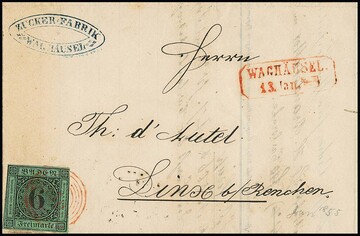 ZUCKER-FABRIK
WAGHÄUSEL
Herrn
WAGHÄUSEL.
13. Jan.
Th: d'Autel.
Linx b/Renchen.
BADEN
6
Freimarke